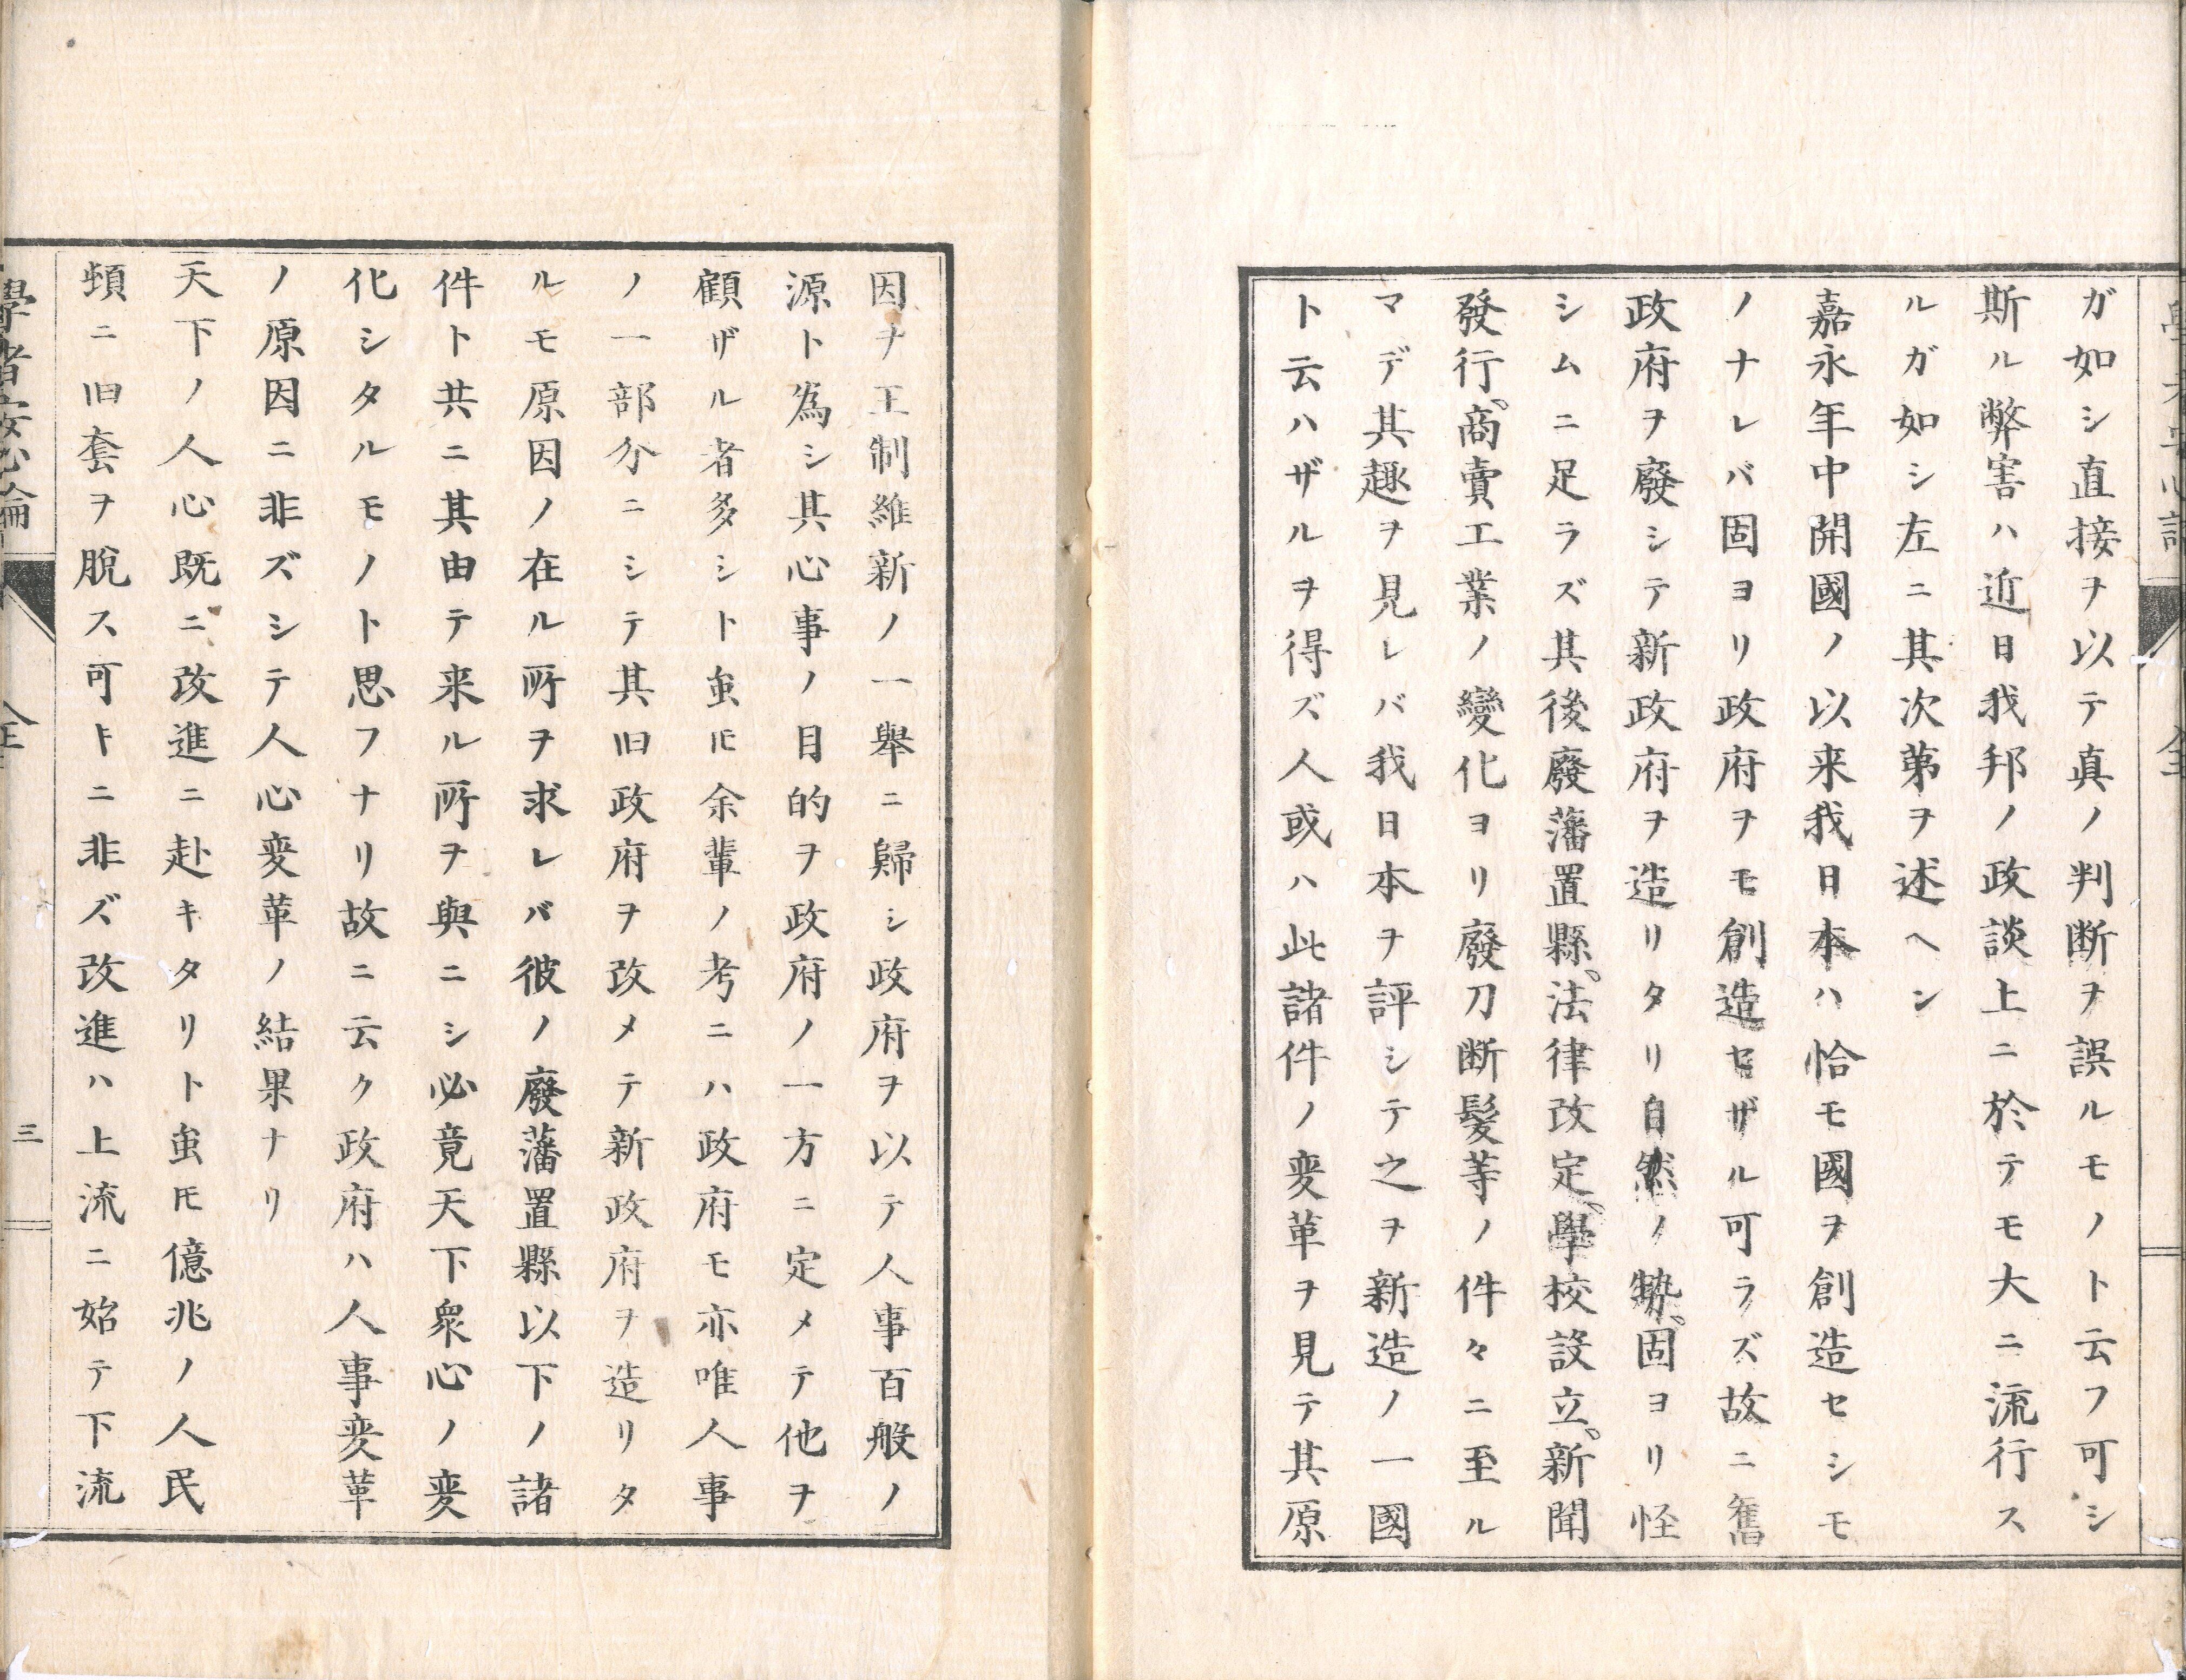 ガ如シ直接ヲ以テ真ノ判断ヲ誤ルモノト云フ可シ
斯ル弊害ハ近日我邦ノ政談上ニ於テモ大ニ流行ス
ルガ如シ左ニ其次第ヲ述ヘン
嘉永年中開國ノ以来我日本ハ恰モ國ヲ創造セシモ
ノナレバ固ヨリ政府ヲモ創造セザル可ラズ故ニ舊
政府ヲ廢シテ新政府ヲ造リタリ自然ノ勢、固ヨリ怪
シムニ足ラズ其後廢藩置縣、法律改定、學校設立、新聞
發行、商賣工業ノ變化ヨリ廢刀断髪等ノ件々ニ至ル
マデ其趣ヲ見レバ我日本ヲ評シテ之ヲ新造ノ一國
ト云ハザルヲ得ズ人或ハ此諸件ノ変革ヲ見テ其原
因ヲ王制維新ノ一舉ニ歸シ政府ヲ以テ人事百般ノ
源ト為シ其心事ノ目的ヲ政府ノ一方ニ定メテ他ヲ
顧ザル者多シト虽𪜈余輩ノ考ニハ政府モ亦唯人事
ノ一部分ニシテ其旧政府ヲ改メテ新政府ヲ造リタ
ルモ原因ノ在ル所ヲ求レバ彼ノ廢藩置縣以下ノ諸
件ト共ニ其由テ来ル所ヲ與ニシ必竟天下衆心ノ変
化シタルモノト思フナリ故ニ云ク政府ハ人事変革
ノ原因ニ非ズシテ人心変革ノ結果ナリ
天下ノ人心既ニ改進ニ赴キタリト虽𪜈億兆ノ人民
頓ニ旧套ヲ脱ス可キニ非ズ改進ハ上流ニ始テ下流
學者安心論
全
三